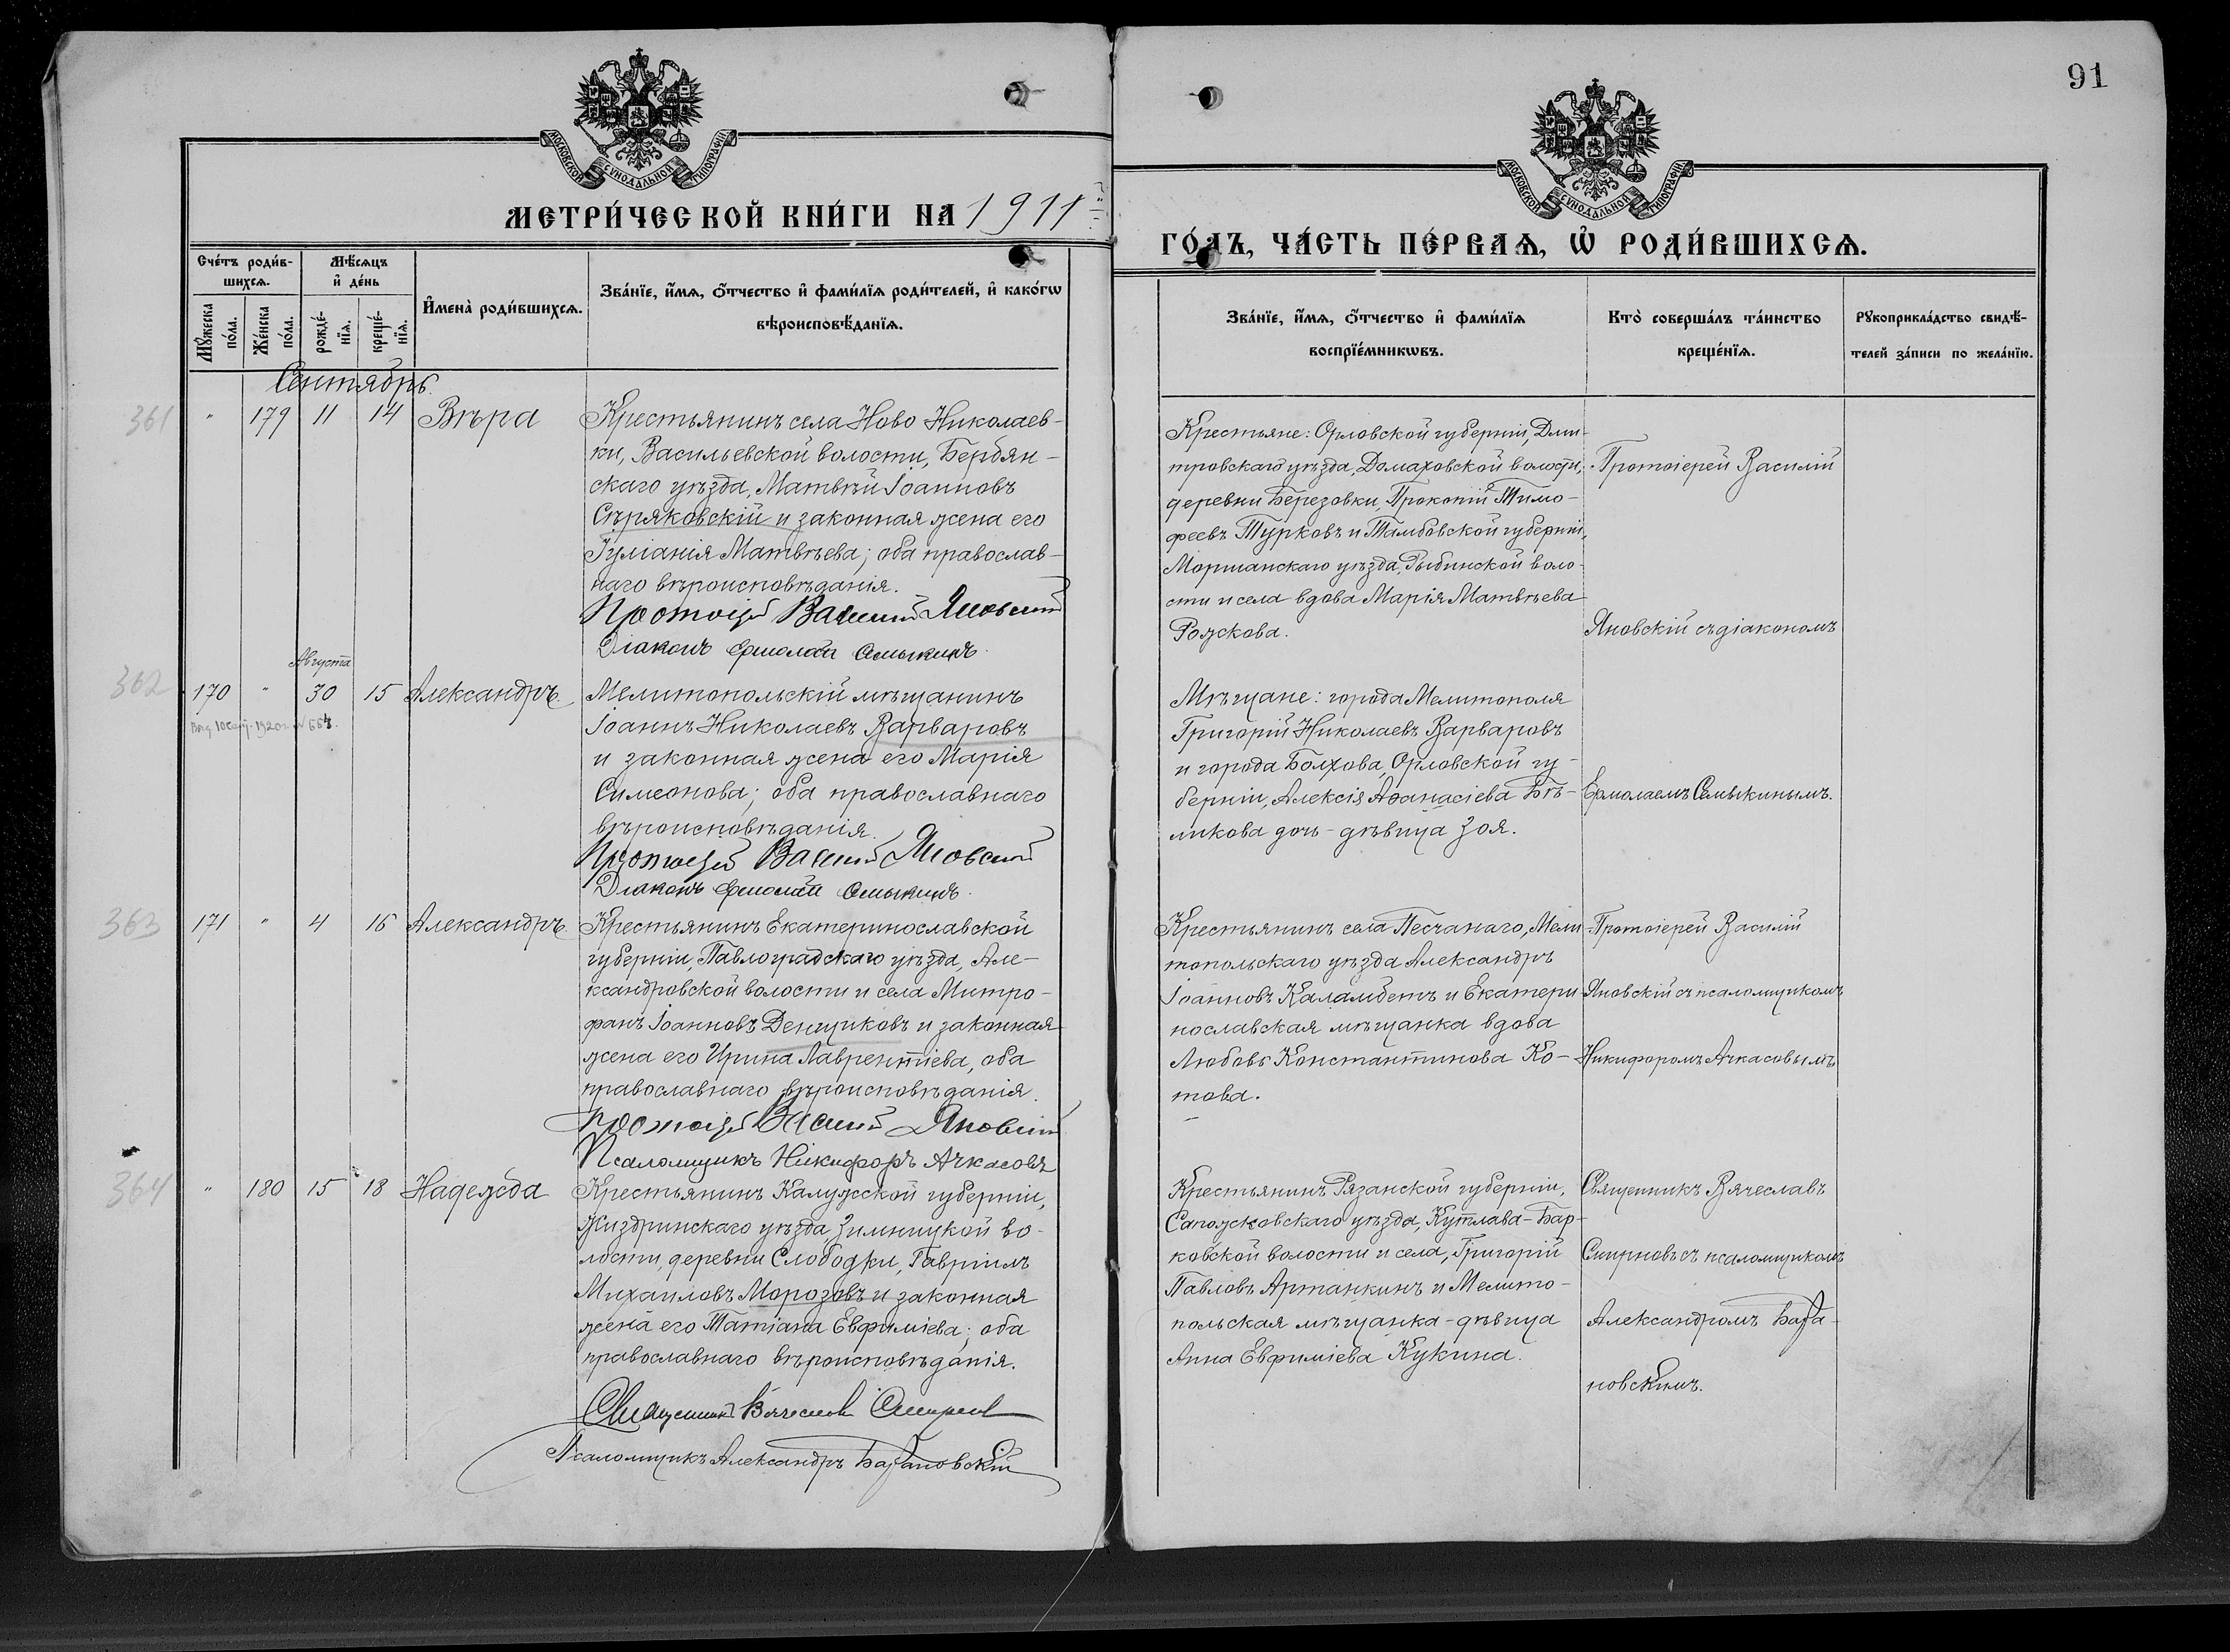 91
МОСКОВСКОЙ СѴНОДАЛЬНОЙ ТИПОГРАФІИ
МОСКОВСКОЙ СѴНОДАЛЬНОЙ ТИПОГРАФІИ
МЕТРИ́ЧЕСКОЙ КНИ́ГИ НА 1911й
ГО́ДЪ, ЧА́СТЬ ПЕ́РВАѦ, Ѡ҆ РОДИ́ВШИХСѦ.
Сче́тъ роди́в-
шихсѧ.
Мꙋ́жеска
по́ла.
Же́нска
по́ла.
Мѣ́сѧцъ
и҆ де́нь
рожде́-
нїѧ.
креще́-
нїѧ.
И҆мена̀ роди́вшихсѧ.
Зва́нїе, и҆́мѧ, ѻ҆́тчество и҆ фами́лїѧ роди́телей, и҆ како́гѡ
вѣроисповѣ́данїѧ.
Зва́нїе, и҆́мѧ, ѻ҆́тчество и҆ фами́лїѧ
воспрїе́мникѡвъ.
Кто̀ соверша́лъ та́инство
креще́нїѧ.
Рꙋкоприкла́дство свидѣ́-
телей за́писи по жела́нїю.
Сентябрь
361 " 179 11 14 Вѣра
Крестьянинъ села Ново Николаев-
ки, Васильевской волости, Бердян-
скаго уѣзда, Матвѣй Іоанновъ
Сѣряковскій и законная жена его
Іуліанія Матвѣева; оба православ-
наго вѣроисповѣданія.
Протоіерей Василий Яновский
Діаконъ Ермолай Смыкинъ.
Крестьяне: Орловской губерніи, Дми-
тровскаго уѣзда, Домаховской волости,
деревни Березовки, Прокопій Тимо-
феевъ Турковъ и Тамбовской губерніи,
Моршанскаго уѣзда, Рыбинской воло-
сти и села вдова Марія Матвѣева
Рожкова.
Протоіерей Василій
Яновскій съ діакономъ
Ермолаемъ Смыкинымъ.
Августа
362 170 " 30 15 Александръ.
1920 г. №
Мелитопольскій мѣщанинъ
Іоаннъ Николаевъ Варваровъ
и законная жена его Марія
Симеонова; оба православнаго
вѣроисповѣданія.
Протоіерей Василий Яновский
Діаконъ Ермолай Смыкинъ.
Мѣщане: города Мелитополя
Григорій Николаевъ Варваровъ
и города Болхова, Орловской гу-
берніи, Алексія Аѳанасіева Бѣ-
ликова дочь - дѣвица Зоя.
363 171 " 4 16 Александръ.
Крестьянинъ Екатеринославской
губерніи, Павлоградскаго уѣзда, Але-
ксандровской волости и села Митро-
фанъ Іоанновъ Денщиковъ и законная
жена его Ирина Лаврентіева, оба
православнаго вѣроисповѣданія.
Протоіерей Василий Яновский
Псаломщикъ Никифоръ Ачкасовъ
Крестьянинъ села Песчанаго, Мели-
топольскаго уѣзда Александръ
Іоанновъ Каламбетъ и Екатери-
нославская мѣщанка вдова
Любовь Константинова Ко-
това.
Протоіерей Василій
Яновскій съ псаломщикомъ
Никифоромъ Ачкасовымъ
364 " 180 15 18 Надежда
Крестьянинъ Калужской губерніи,
Жиздринскаго уѣзда, Зимницкой во-
лости, деревни Слободки, Гавріилъ
Михаиловъ Морозовъ и законная
жена его Татіана Евфиміева; оба
православнаго вѣроисповѣданія.
Священникъ Вячеслав Смирнов
Псаломщикъ Александръ Барановскій
Крестьянинъ Рязанской губерніи,
Сапожковскаго уѣзда, Кутлава-Бар-
ковской волости и села, Григорій
Павловъ Артанкинъ и Мелито-
польская мѣщанка - дѣвица
Анна Евфиміева Кукина.
Священникъ Вячеславъ
Смирновъ съ псаломщикомъ
Александромъ Бара-
новскимъ.